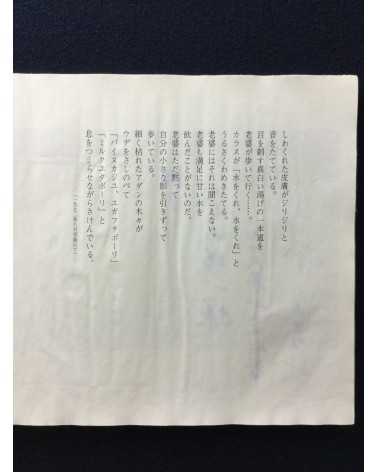 しわくれた皮膚がジリジリと
音をたてている。
目を刺す真白い陽げの一本道を
老婆が歩いて行く……。
カラスが「水をくれ、水をくれ」と
うるさくわめきたてる。
老婆にはそれは聞こえない。
老婆も満足に甘い水を
飲んだことがないのだ。
老婆はただ黙って
自分の小さな影を引きずって
歩いている。
細く枯れたアダンの木々が
ウデをさしのべて
「パイヌカジユ、ユガフゥタボーリ」
「ミルクユタボーリ」と
息をつまらせながらさけんでいる。